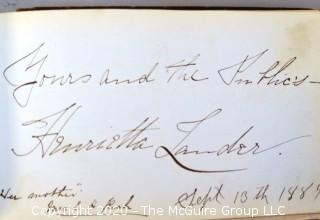 Yours and the Public's —
Henrietta Lander.
Her mother
Sept 13th 188
Copyright 2020 - The McGuire Group Ltd